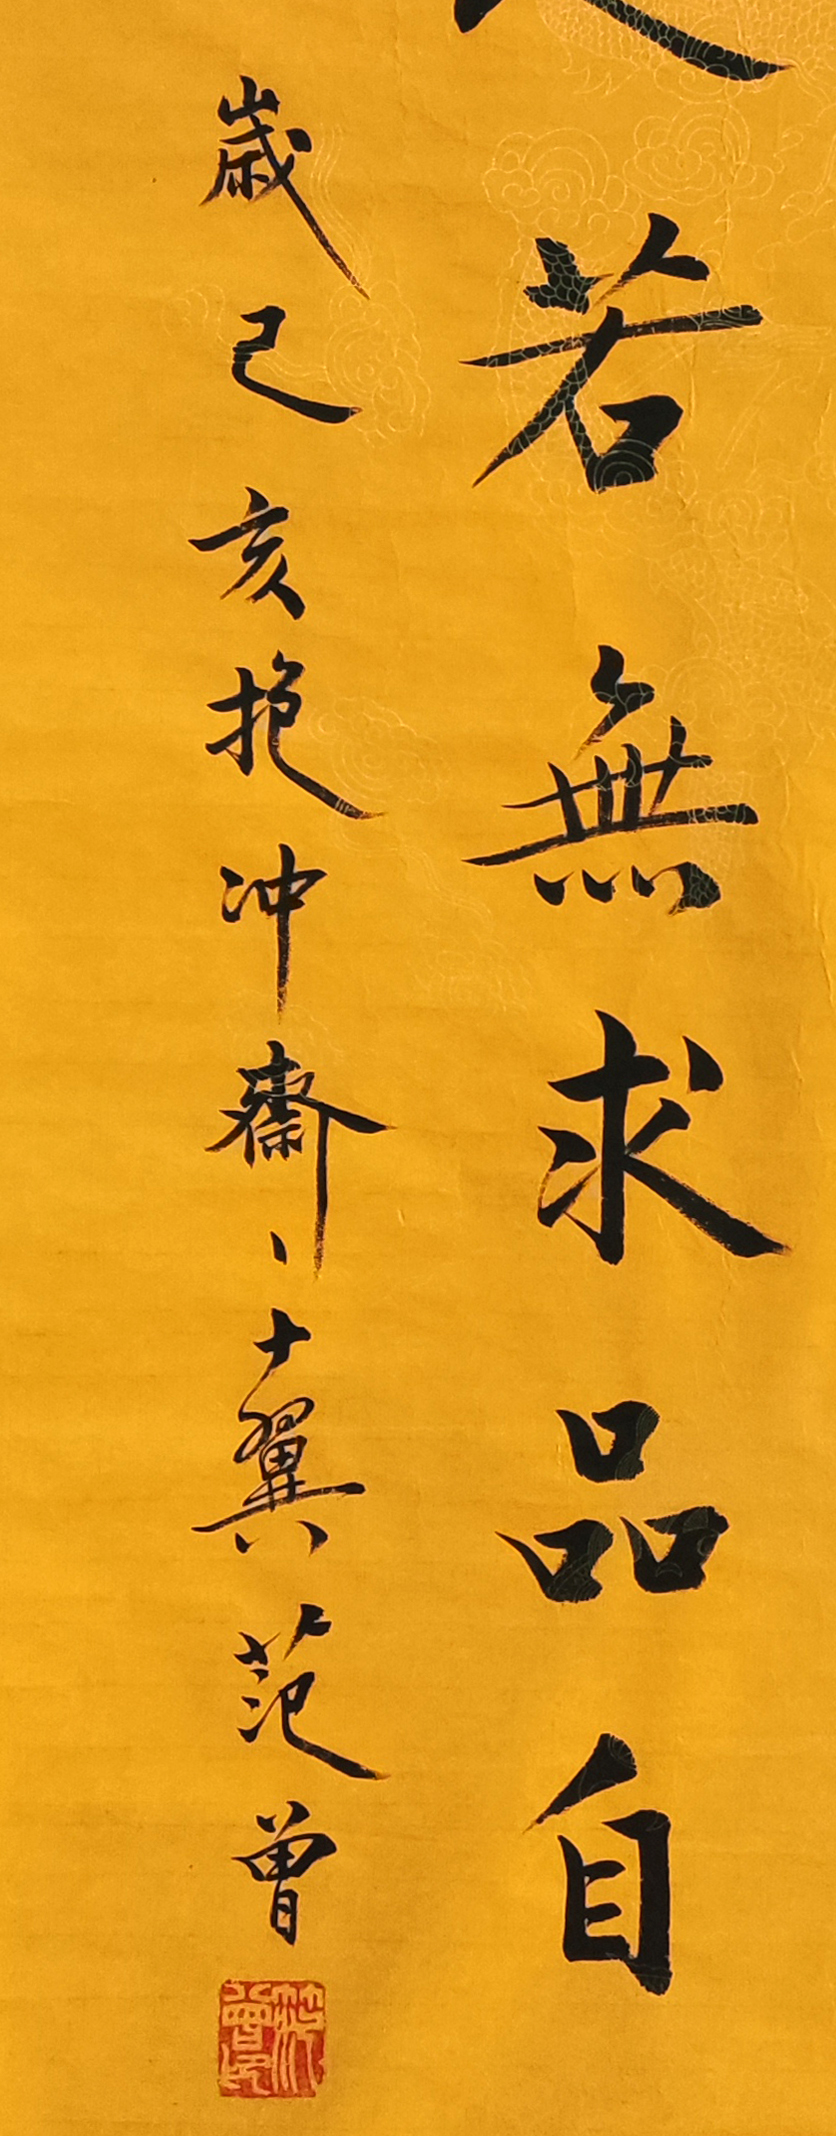 若無求品自
歲己亥抱冲齋、十翼范曾
范曾印